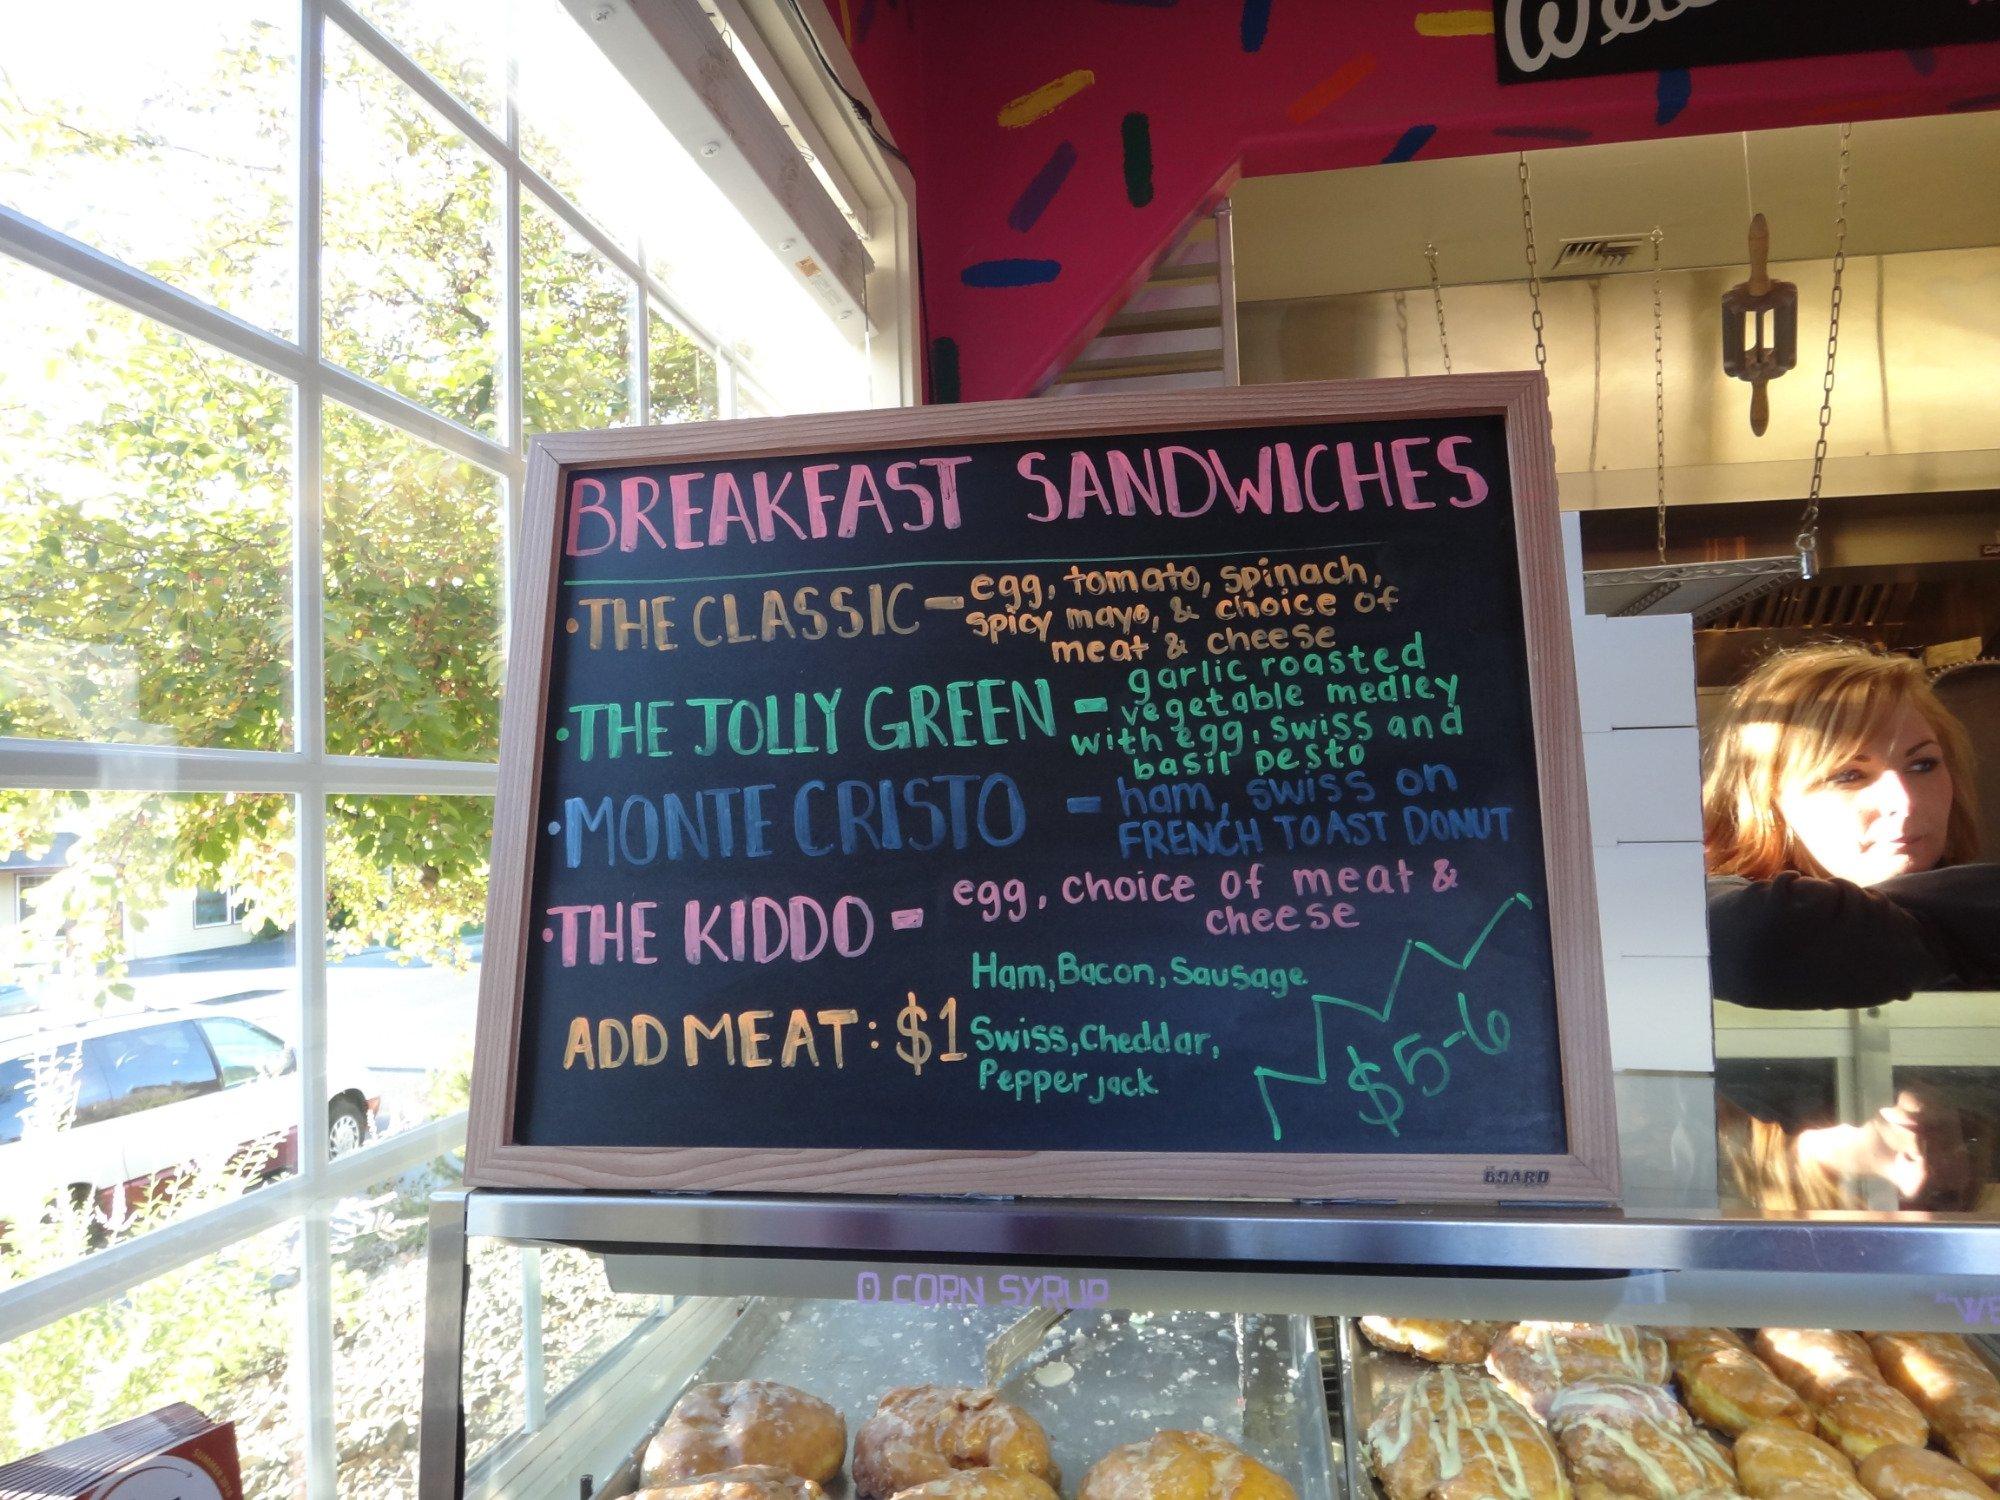 BREAKFAST SANDWICHES
• THE CLASSIC - egg, tomato, spinach,
spicy mayo, & choice of
meat & cheese
• THE JOLLY GREEN - garlic roasted
vegetable medley
with egg, swiss and
basil pesto
• MONTE CRISTO - ham, swiss on
FRENCH TOAST DONUT
• THE KIDDO - egg, choice of meat &
cheese
Ham, Bacon, Sausage
ADD MEAT: $1
Swiss, Cheddar,
Pepper jack
$5-6
BOARD
0 CORN SYRUP